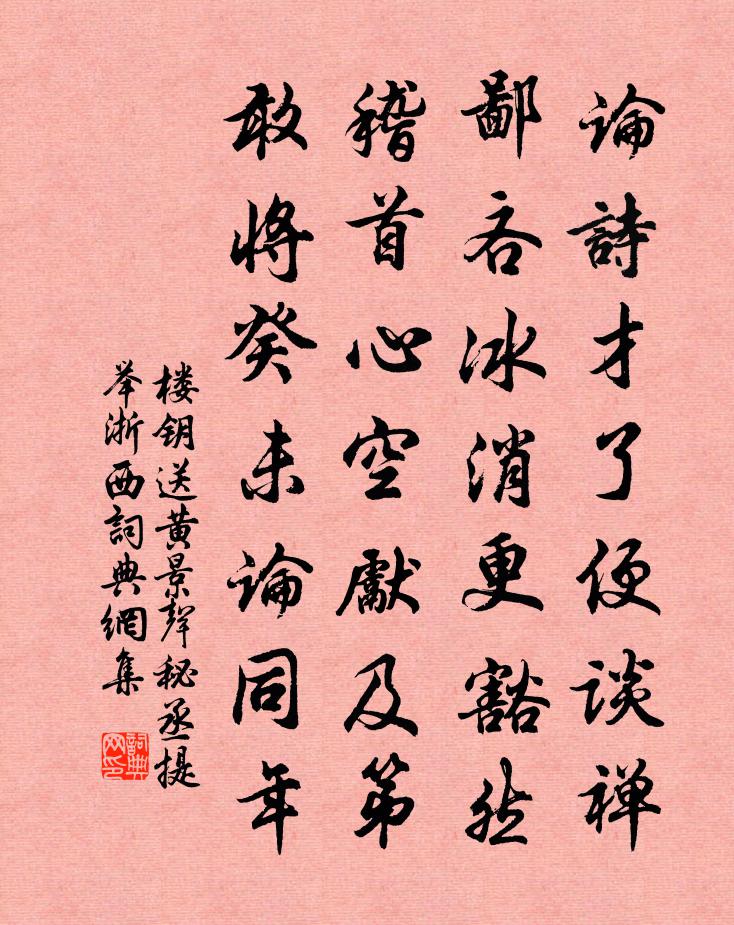 論詩才了便談禅
鄙吝冰消更豁然
稽首心空獻及第
敢將癸未論同年
楼钥送黄景聲秘丞提
举浙西詞典網集
詞典网印